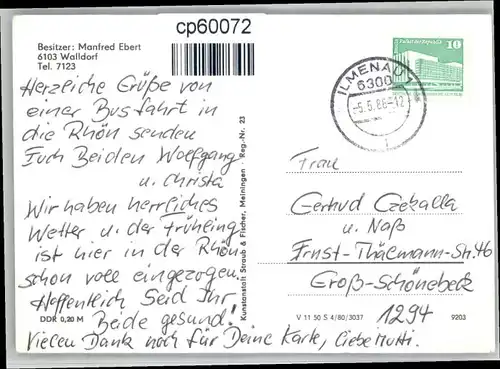 cp60072
Besitzer: Manfred Ebert
6103 Walldorf
Tel. 7123
Herzliche Grüße von
einer Busfahrt in
die Rhön senden
Euch Beiden Wolfgang
u. Christa
Wir haben herrliches
Wetter u. der Frühling
ist hier in der Rhön
schon voll eingezogen.
Hoffentlich Seid Ihr
Beide gesund!
Vielen Dank noch für Deine Karte, liebe Mutti.
DDR 0,20 M
Kunstanstalt Straub & Fischer, Meiningen Reg.-Nr. 23
ILMENAU 1
6300
-5.5.86-12
10
Frau
Gertrud Czekalla
u. Naß
Ernst-Thälmann-Str. 46
Groß-Schönebeck
1294
V 11 50 S 4/80/3037
9203